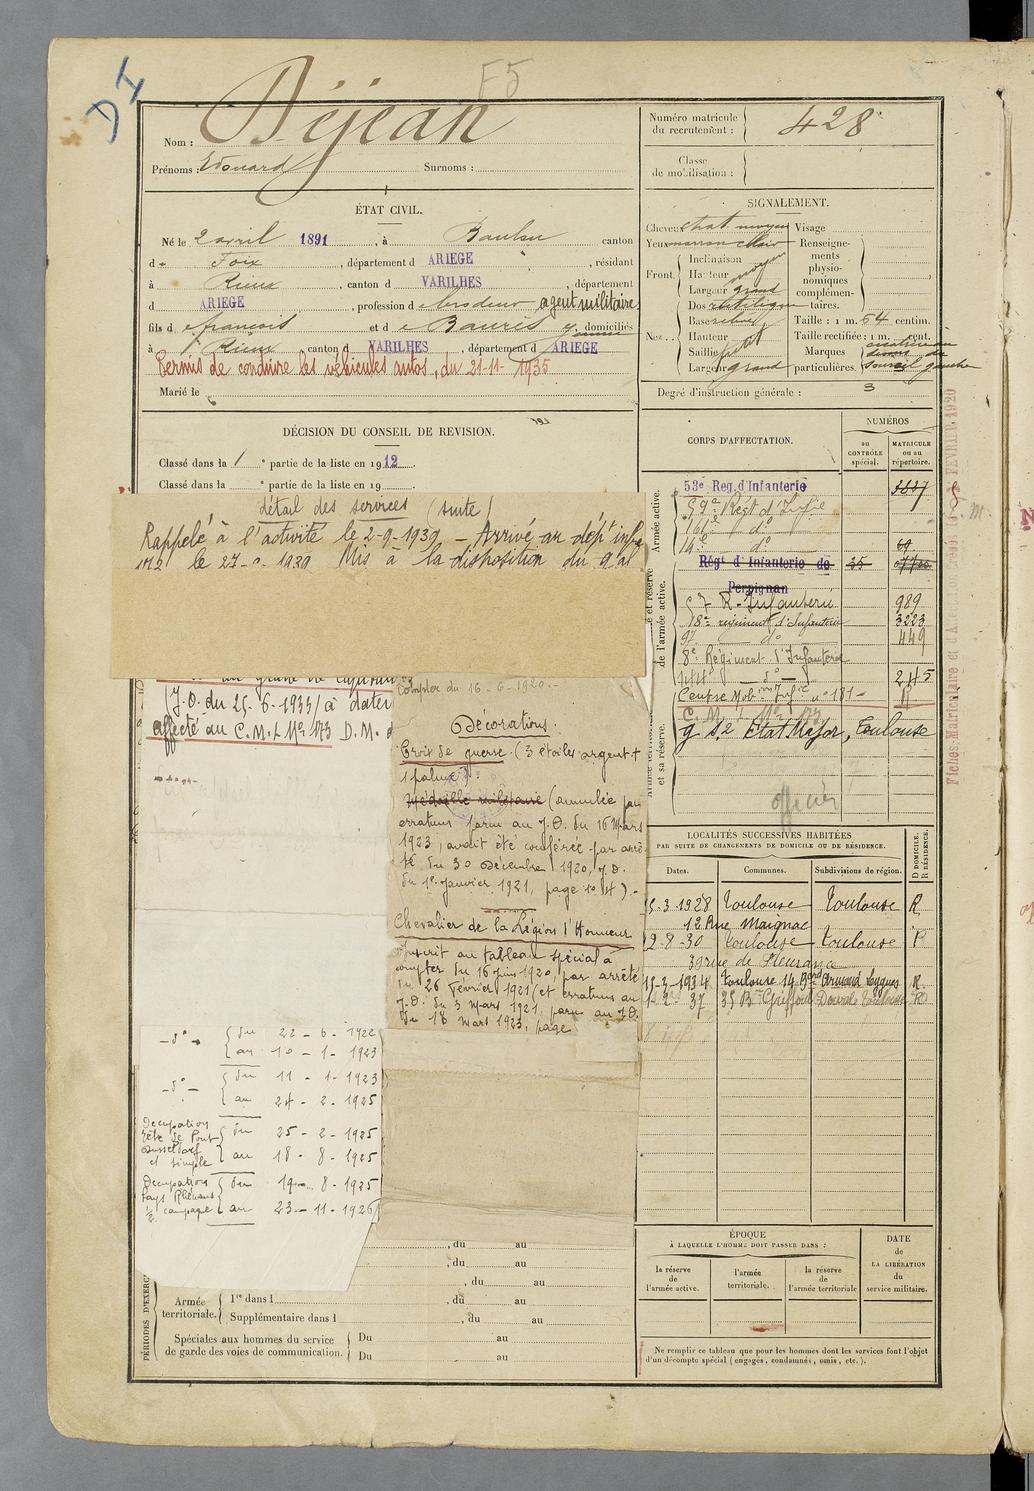 DI
F5
Nom : Déjean
Prénoms : Edouard Surnoms :
ÉTAT CIVIL.
Né le 2 avril 1891, à Baulou canton
d e Foix, département d ARIEGE, résidant
à Rieux, canton d VARILHES, département
d ARIEGE, profession d e brodeur, agent militaire
fils d e françois et d e Bauris, domiciliés
à Rieux, canton d VARILHES, département d ARIEGE
Permis de conduire les véhicules autos, du 21-11-1935
Marié le
DÉCISION DU CONSEIL DE REVISION.
Classé dans la 1 e partie de la liste en 1912.
Classé dans la e partie de la liste en 19
détail des services (suite)
Rappelé à l'activité le 2-9-1939 - Arrivé au dépt infie
172 le 27-9-1939 Mis à la disposition du gal
(J.O. du 25-6-1933) à dater
affecté au C.M.I. No 173 D.M. d
compter du 16-6-1920.-
Décorations.
Croix de guerre (3 étoiles argent +
1 palme)
Médaille militaire (annulée par
erratum parue au J.O. du 16 Mars
1923, avait été conférée par arrê-
té du 30 Décembre 1920, J.O.
du 1er Janvier 1921, page no 4).-
Chevalier de la Légion d'Honneur
inscrit au tableau spécial à
compter du 16 juin 1920, par arrêté
du 26 février 1921 (et erratum au
J.O. du 3 Mars 1921, paru au J.O.
du 18 Mars 1923, page
-do- du 22-6-1922
au 10-1-1923
-do- du 11-1-1923
au 24-2-1925
Occupation
tête de Pont
Dusseldorf
et simple
du 25-2-1925
au 18-8-1925
Occupation
Pays Rhénans
1/2 campagne
du 19-8-1925
au 23-11-1926
PÉRIODES D'EXERC
, du au
, du au
, du au
Armée territoriale.
1re dans l , du au
Supplémentaire dans l , du au
Spéciales aux hommes du service
de garde des voies de communication.
Du au
Du au
Numéro matricule
du recrutement : 428
Classe
de mobilisation :
SIGNALEMENT.
Cheveux chat moyen
Yeux marron clair
Front.
Inclinaison
Hauteur moyen
Largeur grand
Nez..
Dos rectiligne
Base
Hauteur
Saillie petit
Largeur grand
Visage
Renseigne-
ments
physio-
nomiques
complémen-
taires.
Taille : 1 m. 64 centim.
Taille rectifiée : 1 m. cent.
Marques
particulières. cicatrice au
dessus du
sourcil gauche
Degré d'instruction générale : 3
CORPS D'AFFECTATION.
NUMÉROS
au
CONTRÔLE
spécial.
MATRICULE
ou au
répertoire.
Armée active.
53e Reg. d'Infanterie
59e Régt d'Infie
161e do
14e do
et réserve
de l'armée active.
Régt d'Infanterie de 35
Perpignan
57 R. Infanterie 989
18e regiment d'Infanterie 3223
97 do 449
8e Régiment d'Infanterie
do 245
Centre Mobon Infie no 181
C. M. I. No 173
et sa réserve.
g s.2 Etat Major, Toulouse
officier
LOCALITÉS SUCCESSIVES HABITÉES
PAR SUITE DE CHANGEMENTS DE DOMICILE OU DE RÉSIDENCE.
Dates. Communes. Subdivisions de région. D DOMICILE. R RÉSIDENCE.
15-3-1928 Toulouse Toulouse R
12 Rue Maignac
12-8-30 Toulouse Toulouse R
39 rue de Fleurance
15-3-1934 Toulouse 14 Bard Armand Leygues R.
1-2-37 35 Bd Griffoul Dorval Toulouse R
ÉPOQUE
À LAQUELLE L'HOMME DOIT PASSER DANS :
la réserve
de
l'armée active.
l'armée
territoriale.
la réserve
de
l'armée territoriale
DATE
de
LA LIBÉRATION
du
service militaire.
Ne remplir ce tableau que pour les hommes dont les services font l'objet
d'un décompte spécial (engagés, condamnés, omis, etc.).